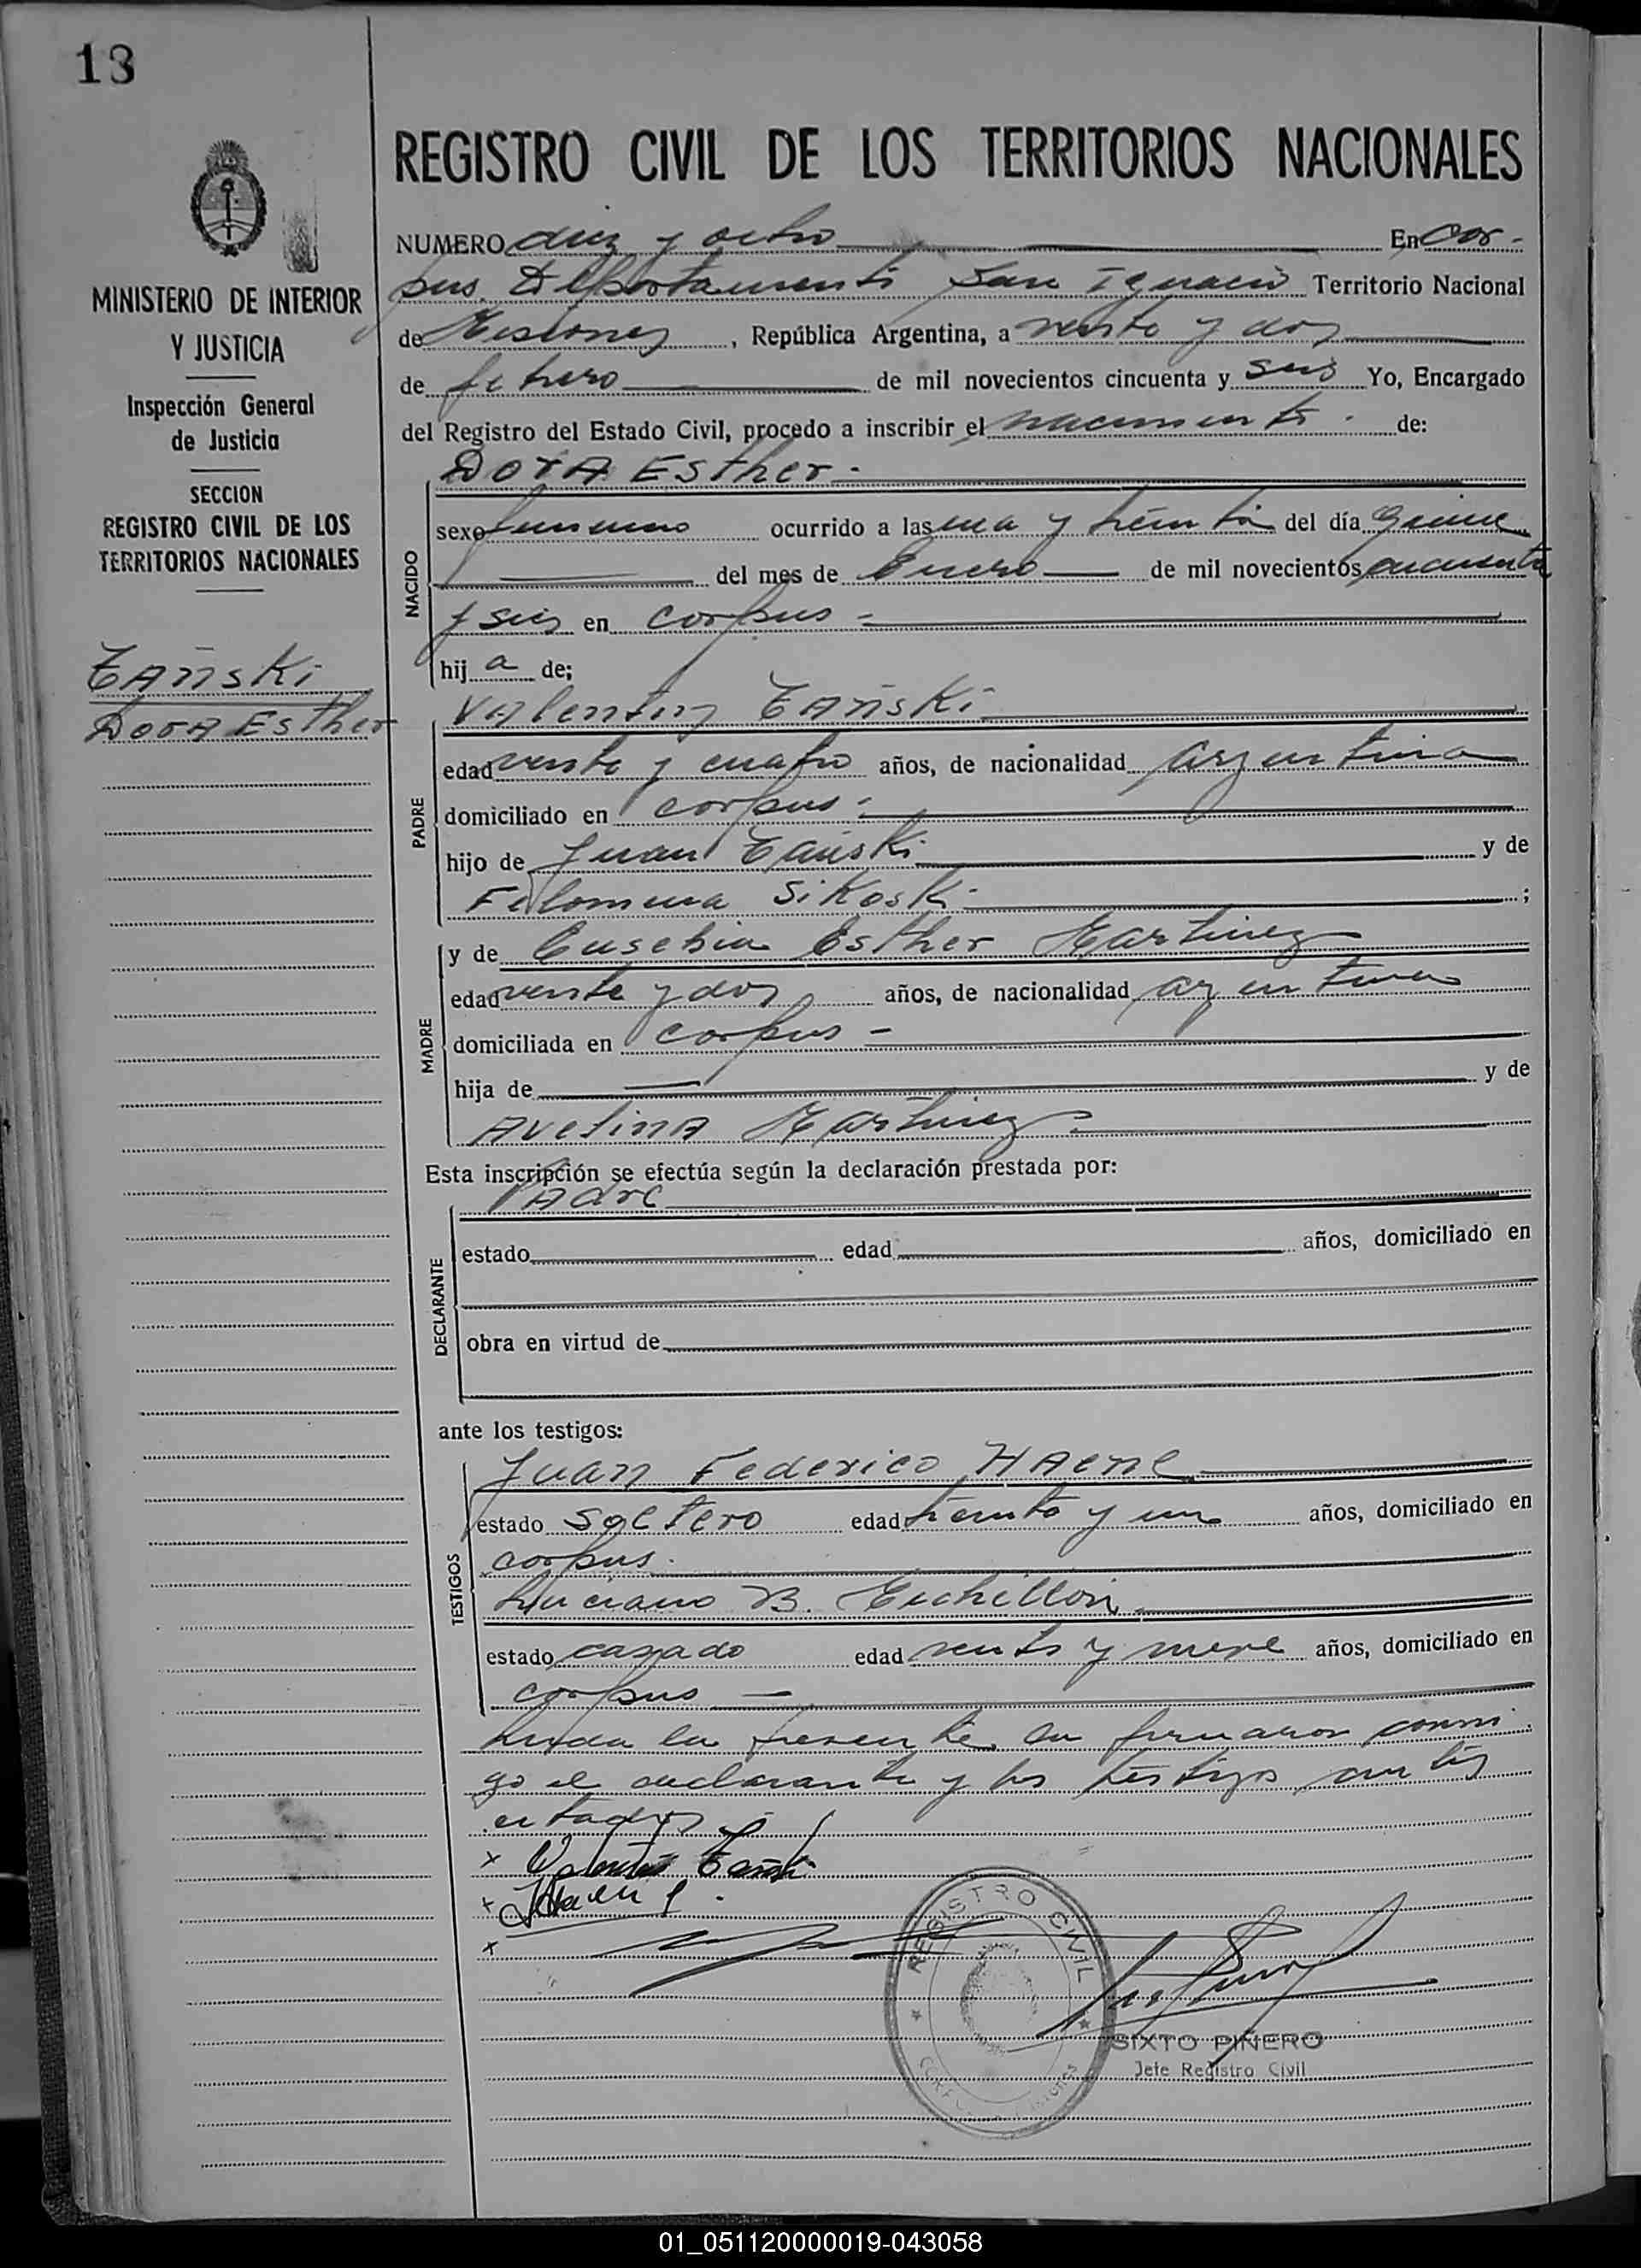 13
REGISTRO CIVIL DE LOS TERRITORIOS NACIONALES
MINISTERIO DE INTERIOR
Y JUSTICIA
Inspección General
de Justicia
SECCION
REGISTRO CIVIL DE LOS
TERRITORIOS NACIONALES
Tañski
Dora Esther
NUMERO diez y ocho En Cor-
pus Departamento San Ignacio Territorio Nacional
de Misiones, República Argentina, a veinte y dos
de febrero de mil novecientos cincuenta y seis Yo, Encargado
del Registro del Estado Civil, procedo a inscribir el nacimiento de:
Dora Esther-
NACIDO
sexo femenino ocurrido a las una y treinta del día quince
del mes de Enero de mil novecientos cincuenta
y seis en Corpus-
hij a de;
PADRE
Valentin Tañski
edad veinte y cuatro años, de nacionalidad argentina
domiciliado en corpus-
hijo de Juan Tañski y de
Filomena Sikoski ;
MADRE
y de Eusebia Esther Martinez
edad veinte y dos años, de nacionalidad argentina
domiciliada en corpus-
hija de y de
Avelina Martinez-
Esta inscripción se efectúa según la declaración prestada por:
DECLARANTE
Padre
estado edad años, domiciliado en
obra en virtud de
ante los testigos:
TESTIGOS
Juan Federico Haene
estado soltero edad treinta y uno años, domiciliado en
corpus.
Luciano B.
estado casado edad veinte y nueve años, domiciliado en
corpus
Leida la presente, la firmaron conmi-
go el declarante y los testigos antes
citados
x Valentin Tañski
x
x
REGISTRO CIVIL
SIXTO PIÑERO
Jefe Registro Civil
01_051120000019-043058